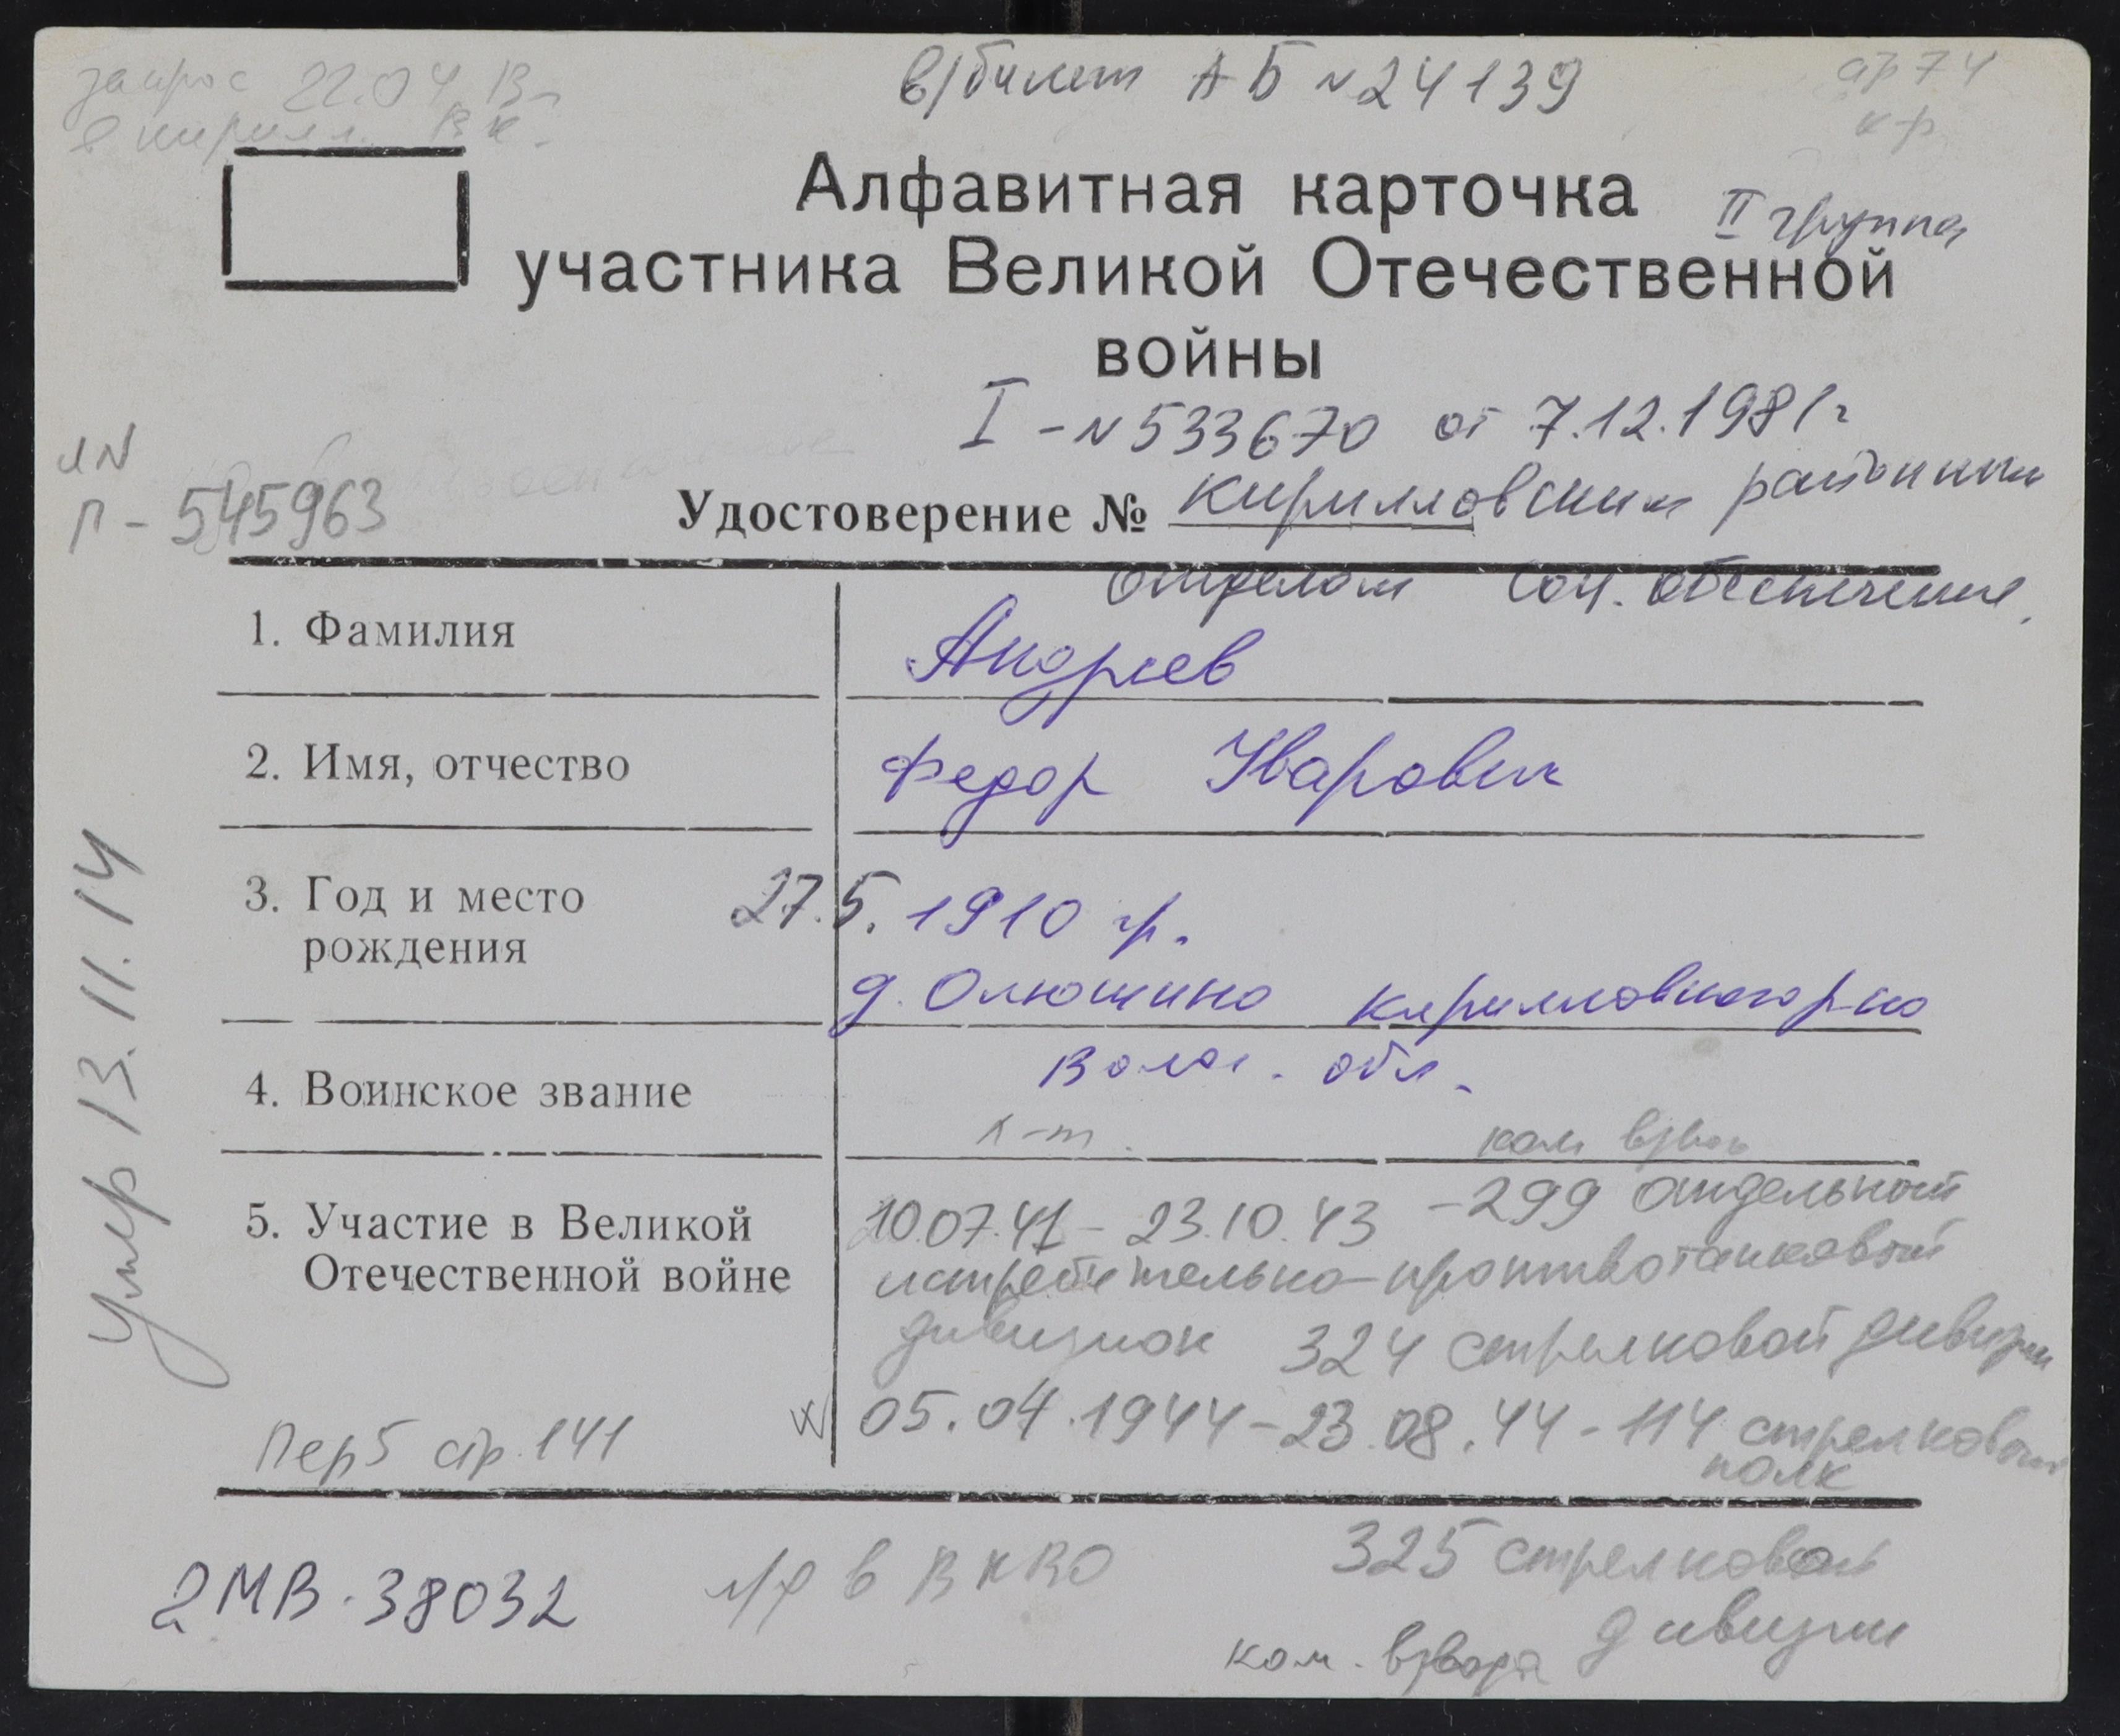 запрос 22.04 Вл
в/билет АБ №24139
ар 74
кр
в Кирилл. ВК.
Алфавитная карточка
II группа
участника Великой Отечественной
войны
I - №533670 от 7.12.1981г
ЛN
П - 545963
Удостоверение № Кирилловским районным
отделом соц. обеспечения.
1. Фамилия Андреев
2. Имя, отчество Федор Уварович
3. Год и место 27.5. 1910 гр.
рождения
д. Олюшино Кирилловского р-на
Волог. обл.
4. Воинское звание
л-т. ком взвода
5. Участие в Великой
Отечественной войне
10.07.41 - 23.10.43 - 299 отдельный
истребительно-противотанковый
дивизион 324 стрелковой дивизии
05.04.1944 - 23.08.44 - 114 стрелковый
полк
Умер 13.11.14
Пер5 стр. 141
325 стрелковой
дивизии
ком. взвода
2МВ-38032
л/д в ВКВО